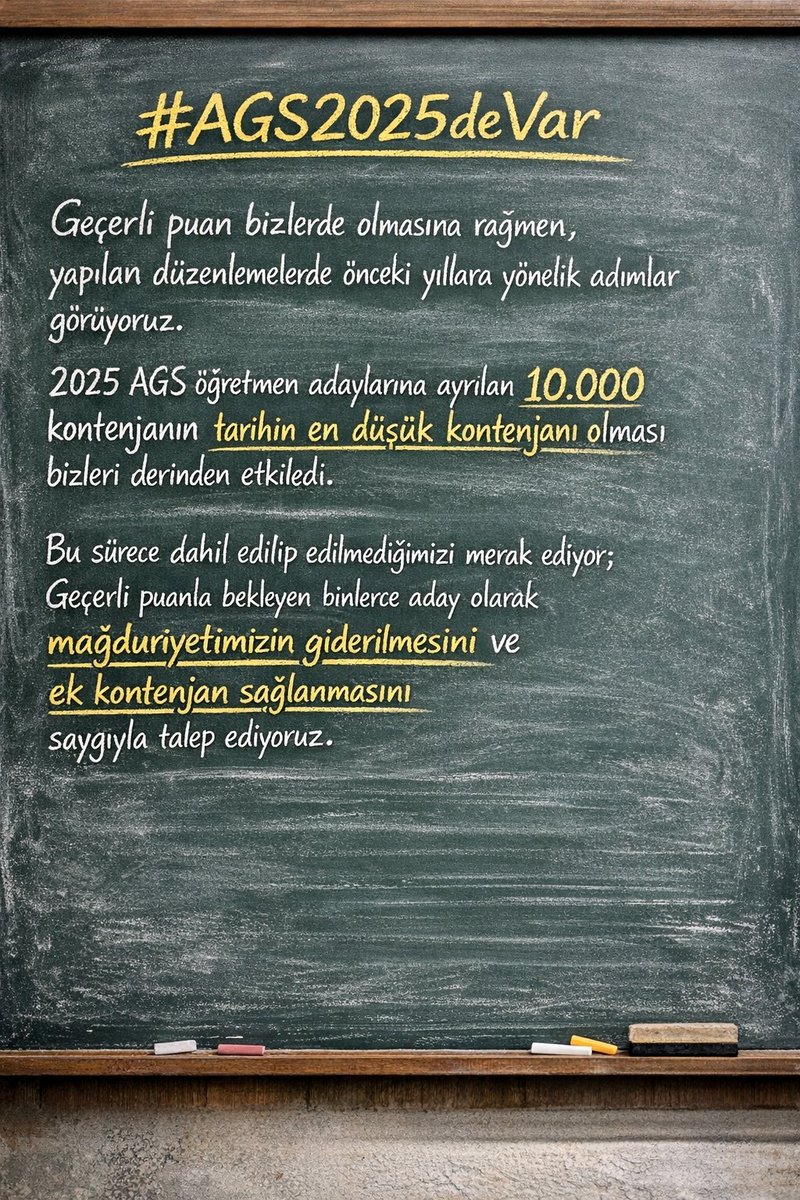 #AGS2025deVar
Geçerli puan bizlerde olmasına rağmen,
yapılan düzenlemelerde önceki yıllara yönelik adımlar
görüyoruz.
2025 AGS öğretmen adaylarına ayrılan 10.000
kontenjanın tarihin en düşük kontenjanı olması
bizleri derinden etkiledi.
Bu sürece dahil edilip edilmediğimizi merak ediyor;
Geçerli puanla bekleyen binlerce aday olarak
mağduriyetimizin giderilmesini ve
ek kontenjan sağlanmasını
saygıyla talep ediyoruz.